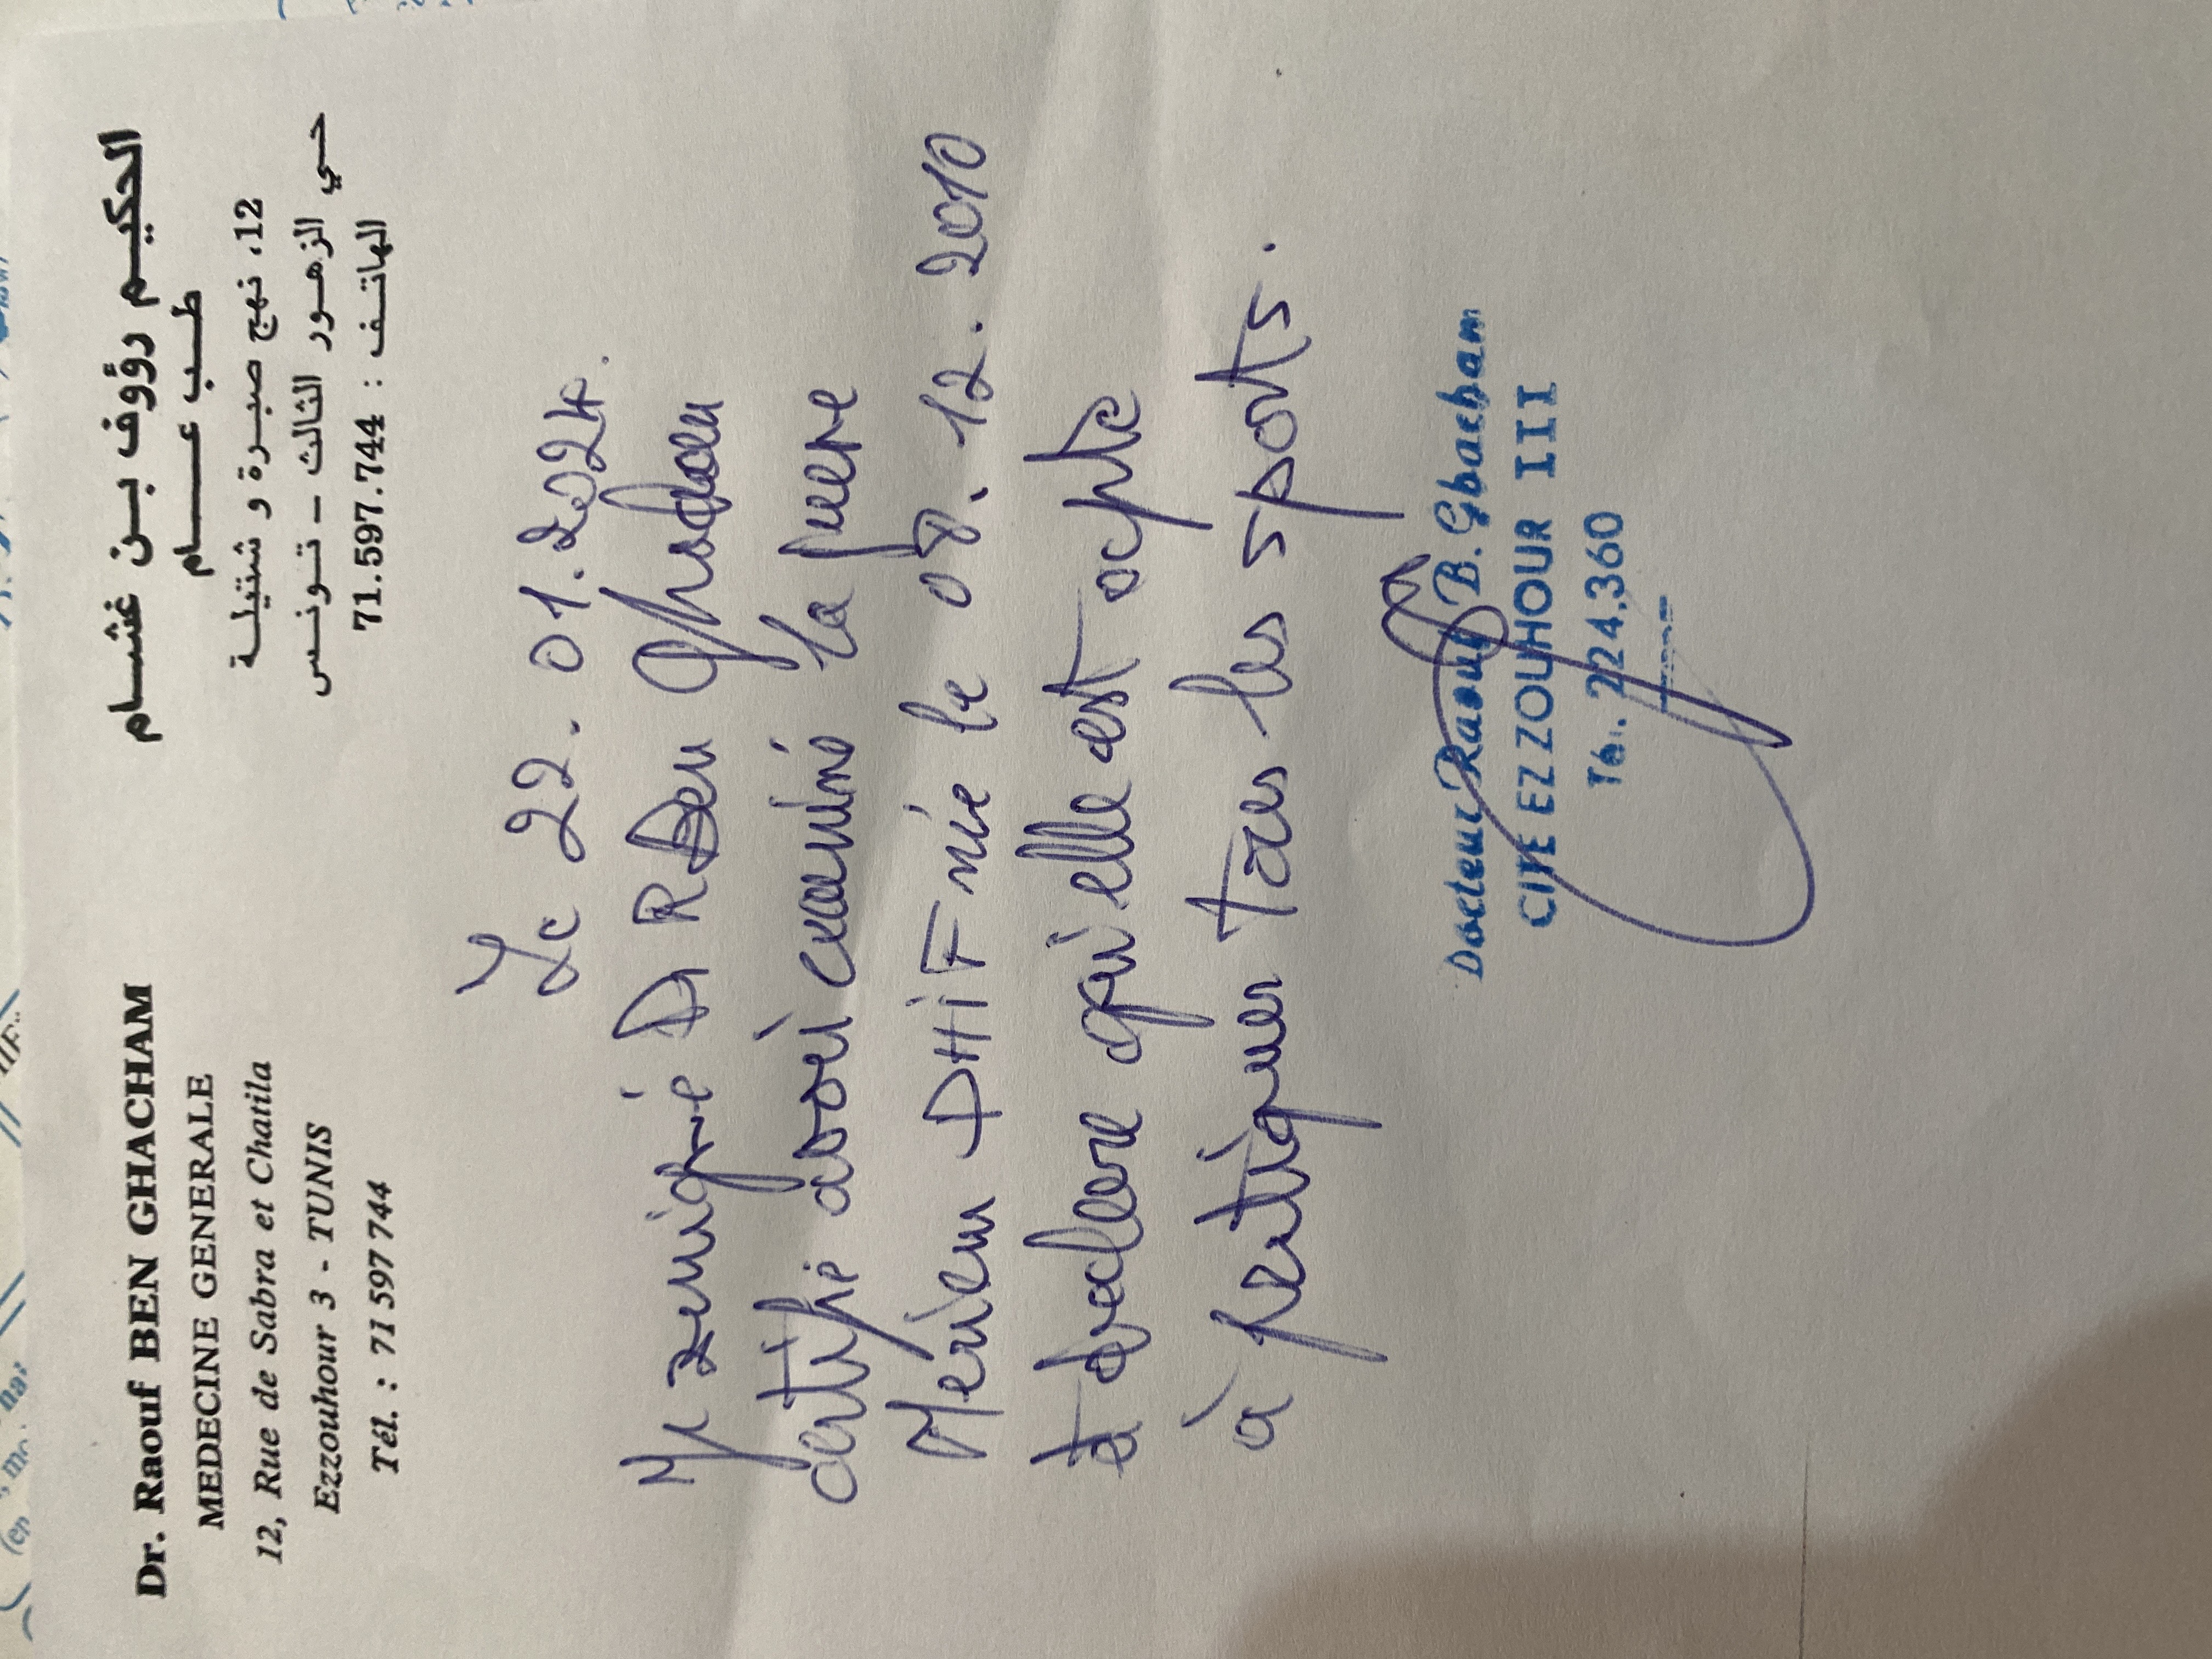 Dr. Raouf BEN GHACHAM
MEDECINE GENERALE
12, Rue de Sabra et Chatila
Ezzouhour 3 - TUNIS
Tél. : 71 597 744
الحكيم رؤوف بن غشام
طب عام
12، نهج صبرة و شتيلة
حي الزهور الثالث - تونس
الهاتف : 71.597.744
Le 22.01.2024.
Je soussigné Dr R Ben Ghacham
certifie avoir examiné la
Meriem DHiF née le 08.12.2010
et declare qu'elle est apte
à pratiquer tous les sports.
Docteur Raouf B. Ghacham
CITE EZ ZOUHOUR III
Tél. 224.360